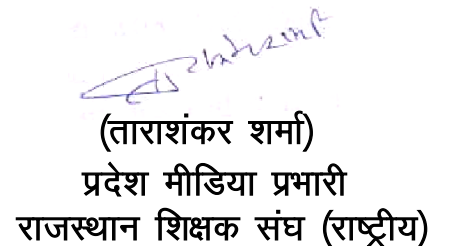 (ताराशंकर शर्मा)
प्रदेश मीडिया प्रभारी
राजस्थान शिक्षक संघ (राष्ट्रीय)